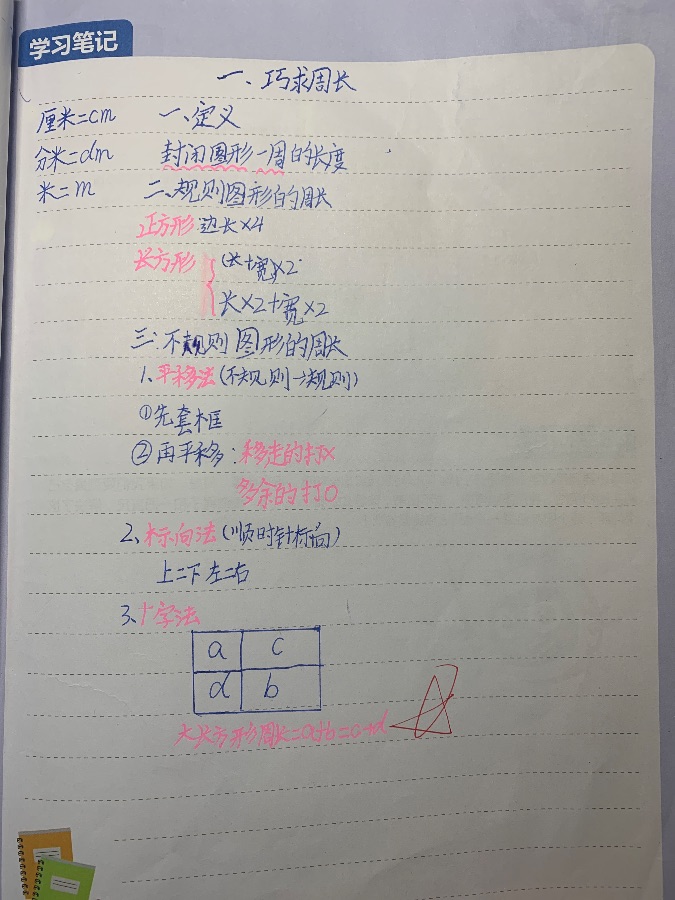 学习笔记
一、巧求周长
厘米=cm 一、定义
分米=dm 封闭图形一周的长度
米=m 二、规则图形的周长
正方形 边长×4
长方形 (长+宽)×2
长×2+宽×2
三、不规则图形的周长
1、平移法(不规则→规则)
①先套框
②再平移:移走的打×
多余的打○
2、标向法(顺时针标向)
上=下 左=右
3、十字法
a c
d b
大长方形周长=a+b=c+d